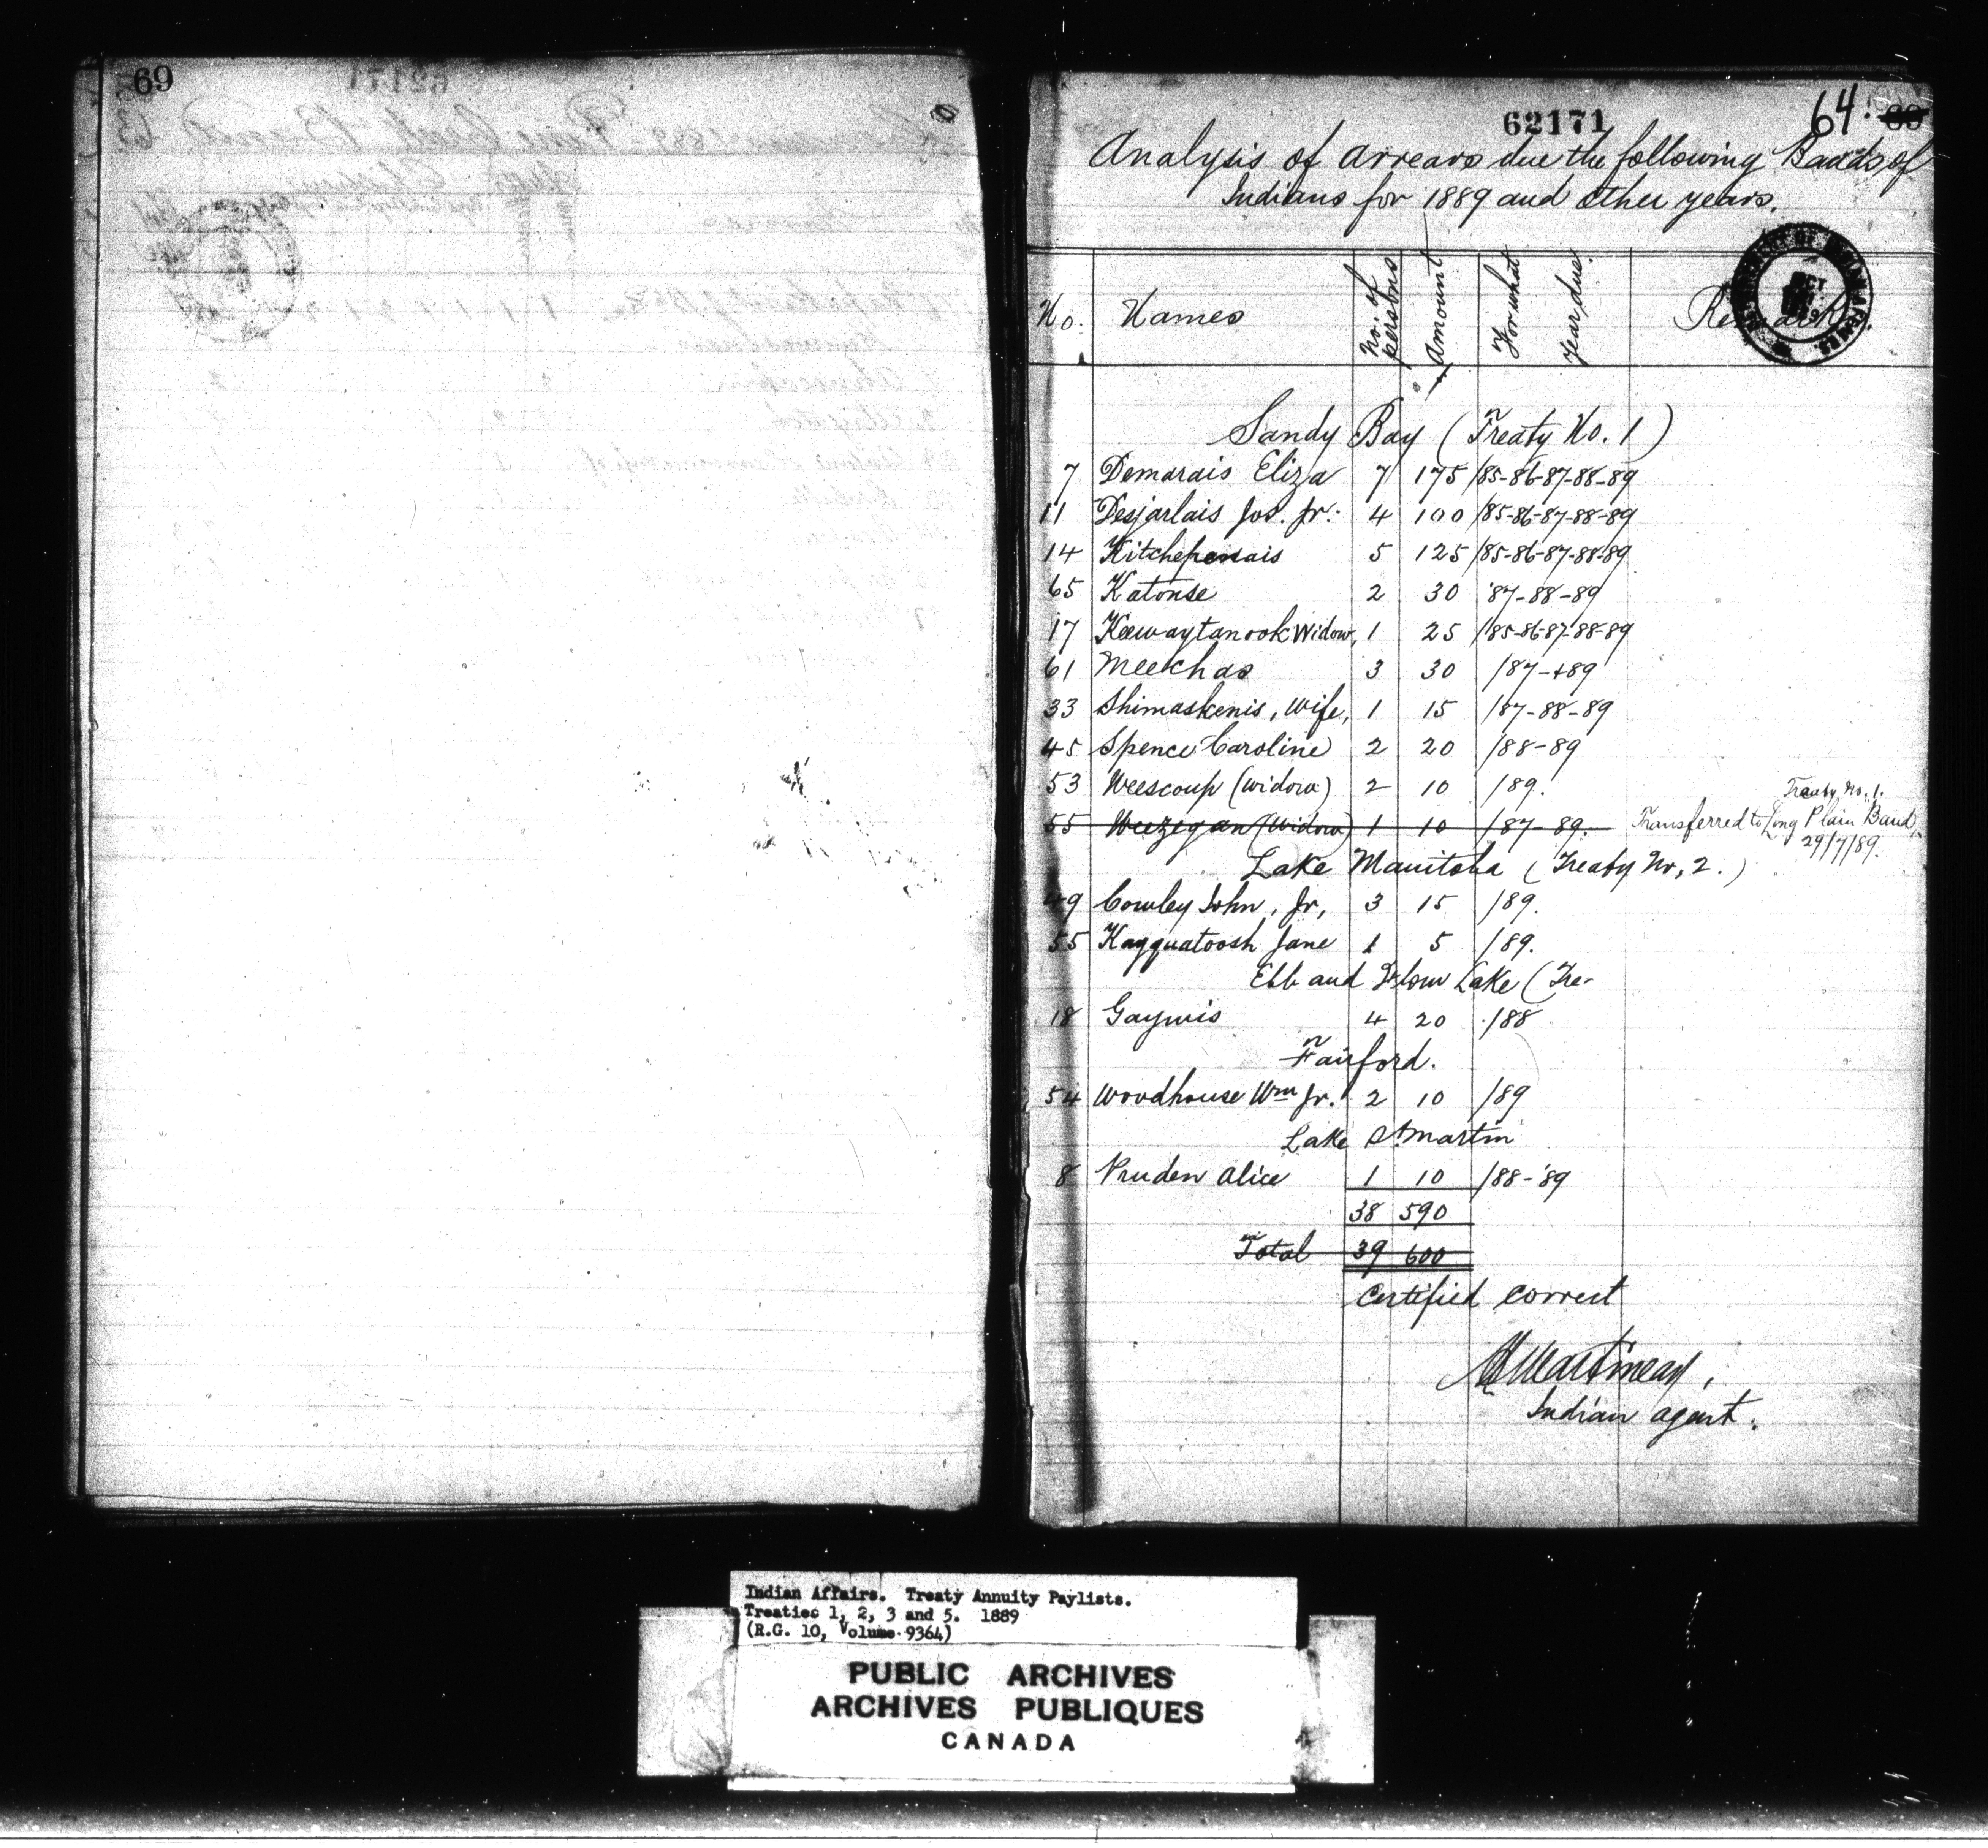 69
62171
64.
Analysis of arrears due the following Bands of
Indians for 1889 and other years.
No. Names No. of persons Amount For what Year due Remarks
Sandy Bay (Treaty No. 1)
7 Demarais Eliza 7 175 /85-86-87-88-89
11 Desjarlais Jos. Jr. 4 100 /85-86-87-88-89
14 Kitchepenais 5 125 /85-86-87-88-89
65 Katonse 2 30 '87-88-89
17 Keewaytanook Widow, 1 25 /85-86-87-88-89
61 Meechas 3 30 /87-+89
33 Shimaskenis, Wife, 1 15 /87-88-89
45 Spence Caroline 2 20 /88-89
53 Weescoup (widow) 2 10 /89.
55 Weezegan (Widow) 1 10 /87-89. Transferred to Long Plain Band, Treaty No. 1. 29/7/89.
Lake Manitoba (Treaty No, 2.)
49 Cowley John, Jr, 3 15 /89.
55 Kayquatoosh Jane 1 5 /89.
Ebb and Flow Lake (Tre-
18 Gaywis 4 20 /88
Fairford.
54 Woodhouse Wm Jr. 2 10 /89
Lake St. Martin
8 Pruden Alice 1 10 /88-'89
38 590
Total 39 600
Certified correct
Martineau,
Indian agent.
Indian Affairs. Treaty Annuity Paylists.
Treaties 1, 2, 3 and 5. 1889
(R.G. 10, Volume 9364)
PUBLIC ARCHIVES
ARCHIVES PUBLIQUES
CANADA